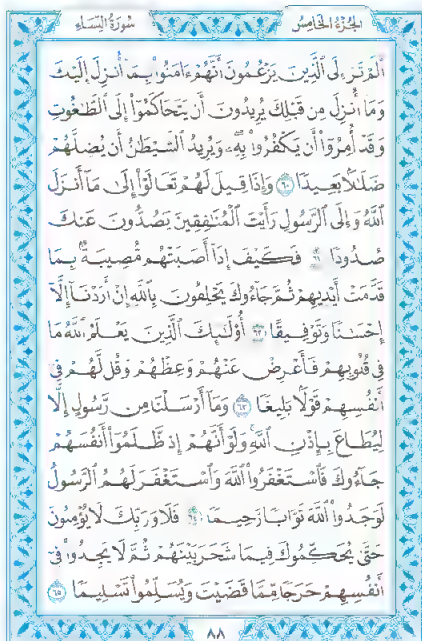 الجزء الخامس
سورة النساء
ألم تر إلى الذين يزعمون أنهم ءامنوا بما أنزل إليك
وما أنزل من قبلك يريدون أن يتحاكموا إلى الطغوت
وقد أمروا أن يكفروا به ويريد الشيطن أن يضلهم
ضللا بعيدا ٦٠ وإذا قيل لهم تعالوا إلى ما أنزل
الله وإلى الرسول رأيت المنفقين يصدون عنك
صدودا ٦١ فكيف إذا أصبتهم مصيبة بما
قدمت أيديهم ثم جاءوك يحلفون بالله إن أردنا إلا
إحسنا وتوفيقا ٦٢ أولئك الذين يعلم الله ما
في قلوبهم فأعرض عنهم وعظهم وقل لهم في
أنفسهم قولا بليغا ٦٣ وما أرسلنا من رسول إلا
ليطاع بإذن الله ولو أنهم إذ ظلموا أنفسهم
جاءوك فاستغفروا الله واستغفر لهم الرسول
لوجدوا الله توابا رحيما ٦٤ فلا وربك لا يؤمنون
حتى يحكموك فيما شجر بينهم ثم لا يجدوا في
أنفسهم حرجا مما قضيت ويسلموا تسليما ٦٥
٨٨